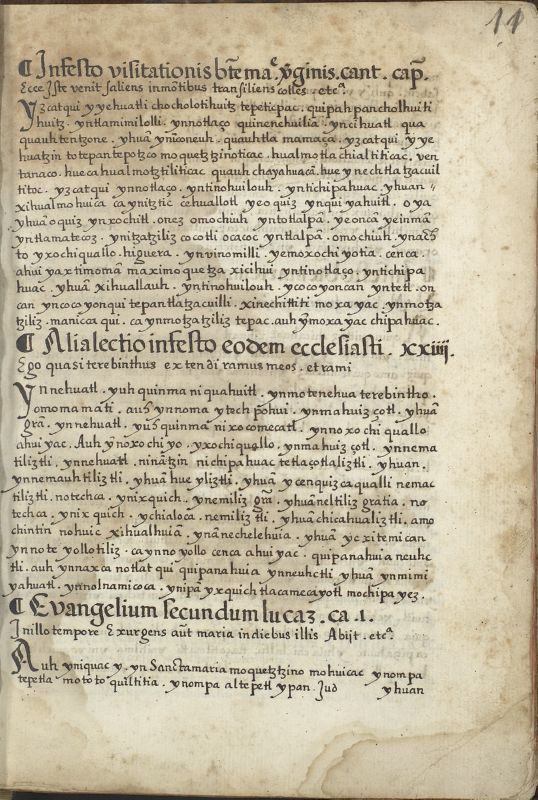 11
¶ Infesto visitationis bt̃e maᵉ. ỹginis. cant. cap̃.
Ecce Iste venit saliens inmõtibus transiliens colles. etcᵃ.
Yzcatqui yyehuatli chocholotihuitz tepeticpac. quipahpancholhuiti
huitz. yntlamimilolli. ynnotlaço quinenehuilia. yncihuatl qua
quauhtentzone. yhuã yniconeuh. quauhtla mamaça. yzcatqui yye
huatzin totepantepotzco moquetzinoticac. hualmotlachialtiticac. ven
tanaco. huecahualmotztiliticac quauhchayahuacã. hueynechtlatzacuil
titoc. yzcatqui ynnotlaço. yntinohuilouh. yntichipahuac. yhuan
xihualmohuica caynitztic cehuallotl yeoquiz ynquiyahuitl. oya
yhuã oquiz ynxochitl. onez omochiuh yntotlalpã. yeoncã yeinmã
yntlamatecoz. ynitzatziliz cocotli ocacoc yntlalpã. omochiuh. ynach
to yxochiquallo. higuera. ynvinomilli. yemoxochiyotia. cenca.
ahuiyax timomã maximoquetza xicihui yntinotlaço. yntichipa
huac. yhuã xihuallauh. yntinohuilouh. ycocoyoncan yntetl. on
can yncocoyonqui tepantlatzacuilli. xinechittiti moxayac. ynmotza
tziliz. manicaqui. ca ynmotzatziliz tepac. auh ỹmoxayac chipahuac.
¶ Alialectio infesto eodem ecclesiasti. xxiiij.
Ego quasi terebinthus extendi ramus meos. et rami
Ynnehuatl. yuhquinma niquahuitl. ynmotenehua terebintho.
omomamati. auh ynnoma ytech põhui. ynmahuizçotl. yhuã
grã. ynnehuatl. yuhquinma nixocomecatl. ynnoxochiquallo
ahuiyac. Auh ynnoxochiyo. yxochiquallo. ynmahuizçotl. ynnema
tiliztli. ynnehuatl. ninãtzin nichipahuac tetlaçotlaliztli. yhuan.
ynnemauhtiliztli. yhuã hueyliztli. yhuã ycenquizcaqualli nemac
tiliztli. notechca. ynixquich. ynemiliz grã. yhuãneltiliz gratia. no
techca. ynixquich. ychialoca. nemiliztli. yhuã chicahualiztli. amo
chintin nohuic xihualhuiã. ynãnechelehuia. yhuã ycxitemican
ynnoteyollotiliz. ca ynnoyollo cenca ahuiyac. quipanahuia neuhc
tli. auh ynnaxca notlatqui quipanahuia ynneuhctli yhuã ynmimi
yahuatl. ynnolnamicoca. ynipã yxquich tlacamecayotl mochipa yez.
¶ Evangelium secundum lucaz. ca .1.
Inillo tempore Exurgens aũt maria indiebus illis Abijt. etcᵃ.
Auh yniquac y. yn Sanctamaria moquetztzino mohuicac ynompa
tepetla mototoquiltitia. ynompa altepetl ypan. Jud yhuan